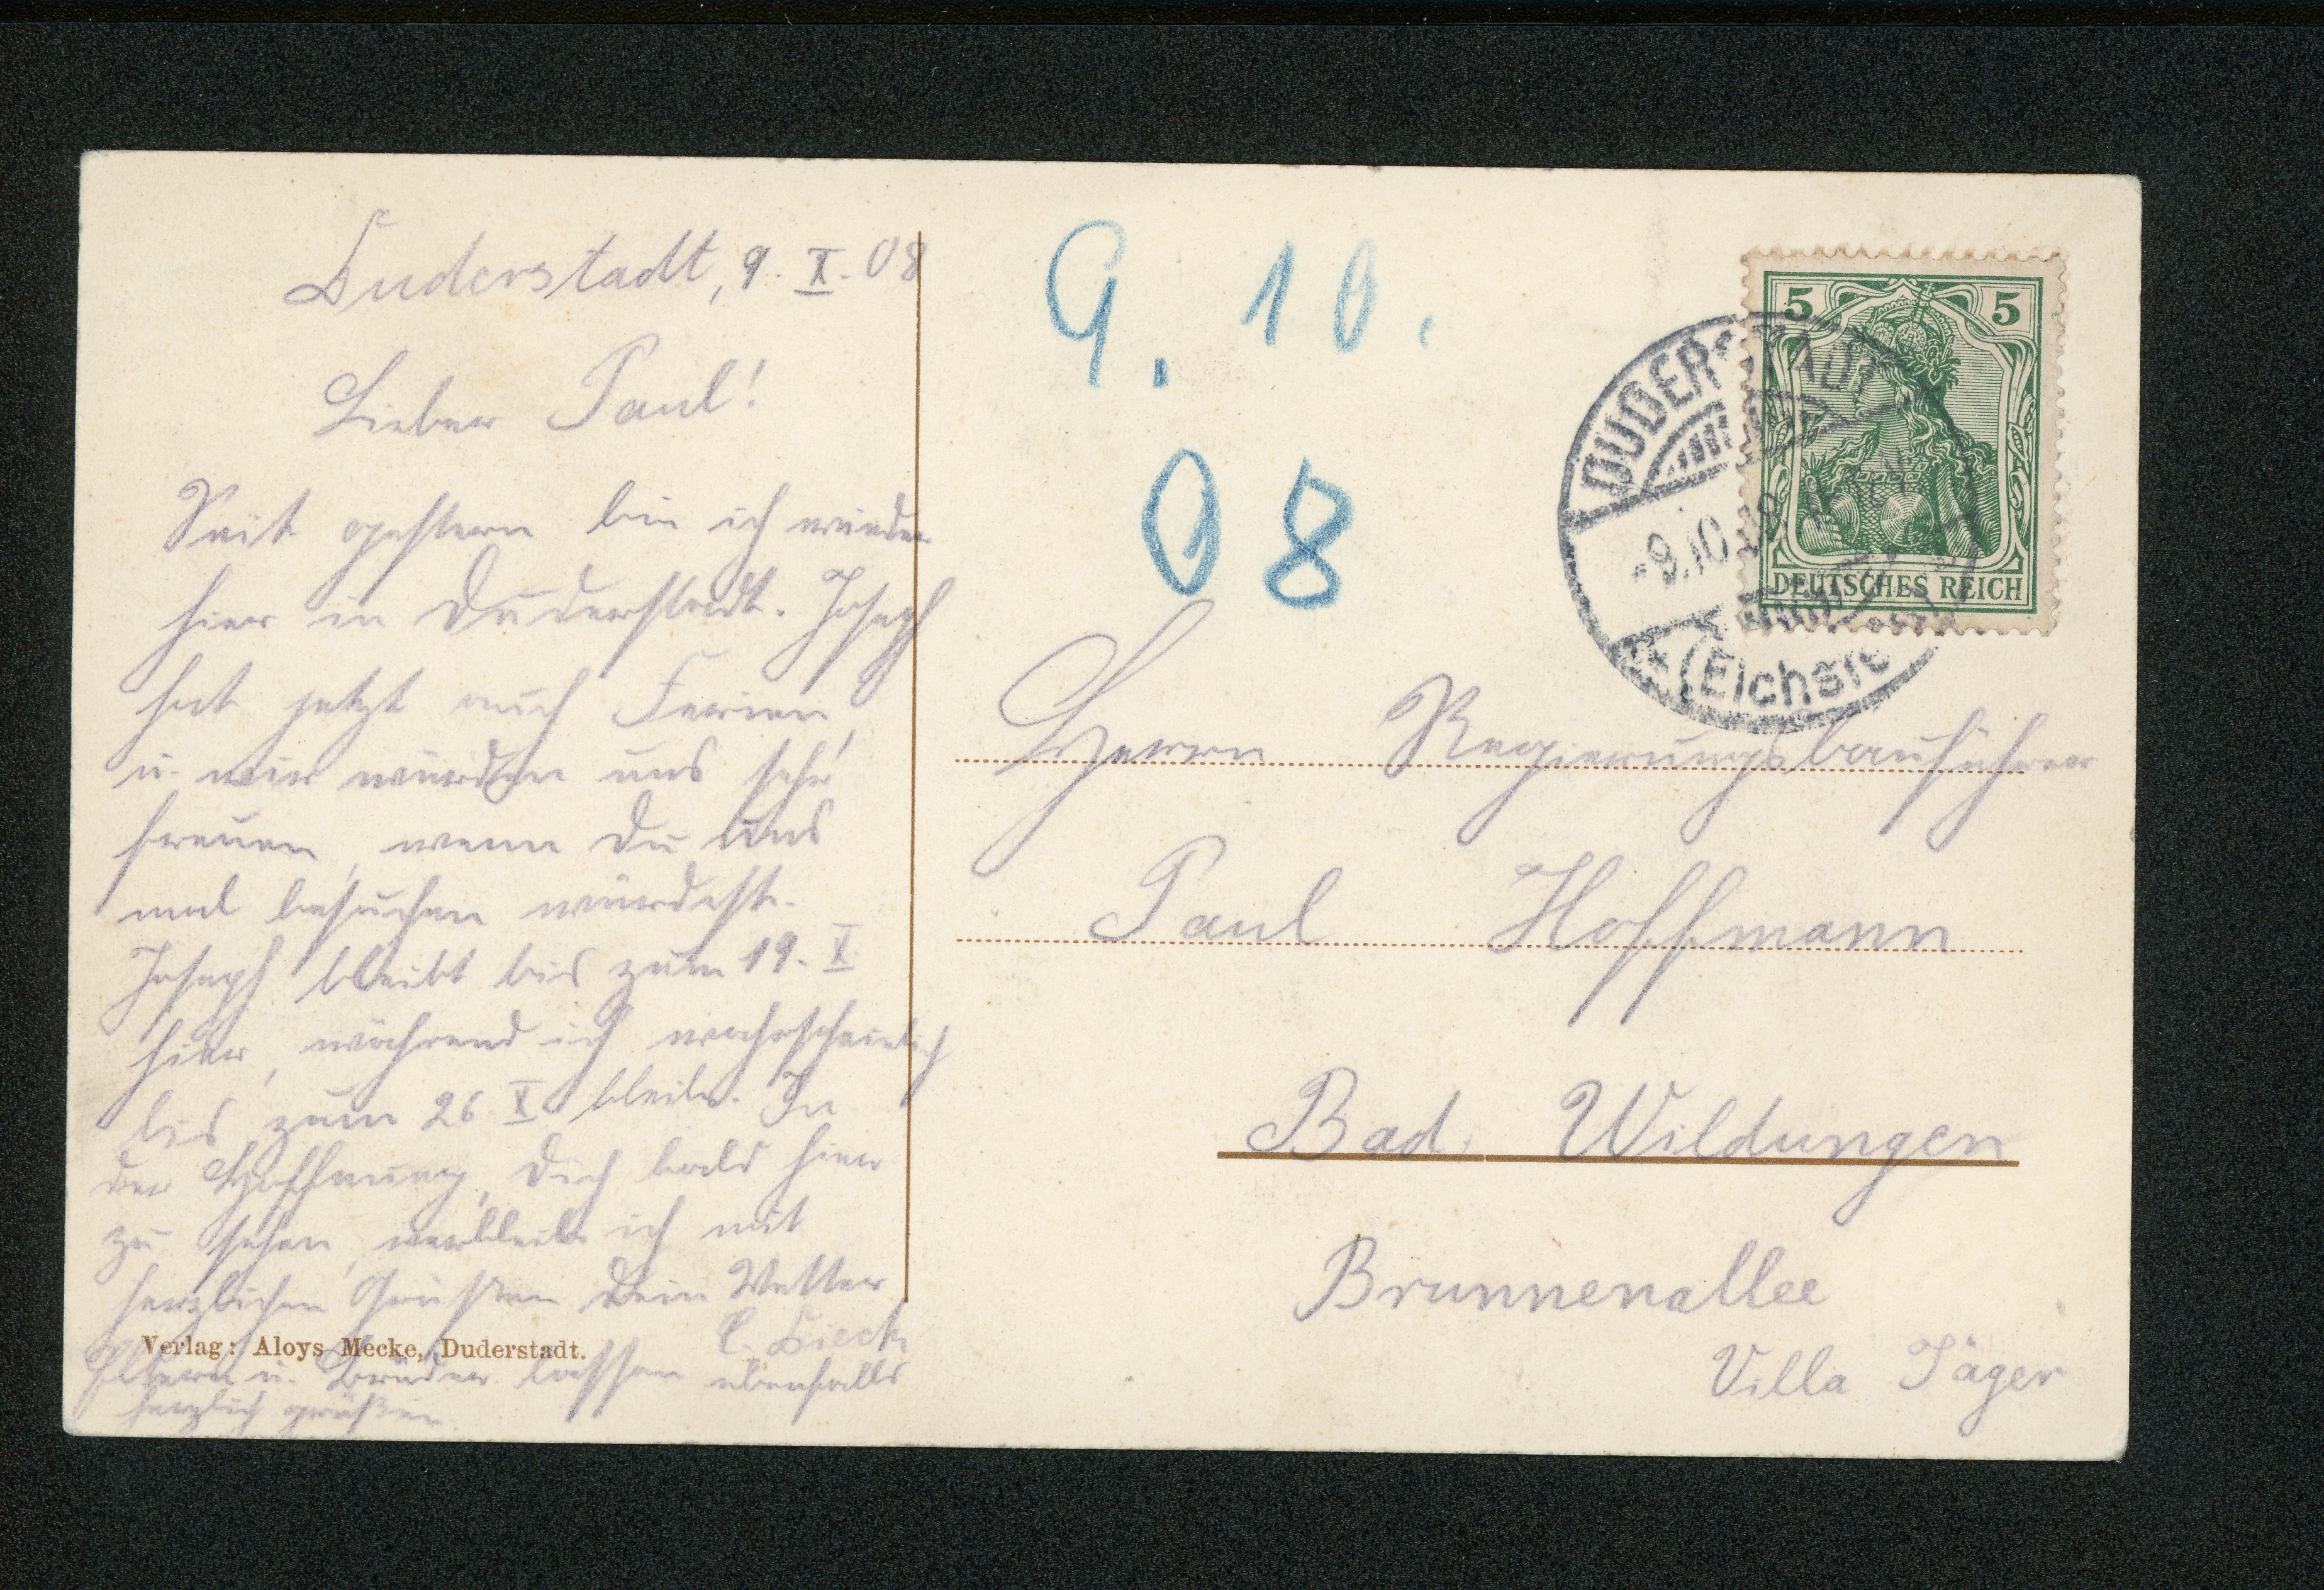 Duderstadt, 9. X. 08
Lieber Paul!
Seit gestern bin ich wieder
hier in Duderstadt. Joseph
hat jetzt auch Ferien,
u. wir würden uns sehr
freuen, wenn Du uns
mal besuchen würdest.
Joseph bleibt bis zum 19. X
hier, während ich wahrscheinlich
bis zum 26. X bleibe. In
der Hoffnung, Dich bald hier
zu sehen, verbleibe ich mit
herzlichen Grüßen Dein Vetter
Verlag: Aloys Mecke, Duderstadt.
Eltern u. Brüder lassen ebenfalls
herzlich grüßen
9. 10.
08
5 5
DEUTSCHES REICH
DUDERSTADT
-9.10.
(Eichsfe
Herrn Regierungsbauführer
Paul Hoffmann
Bad Wildungen
Brunnenallee
Villa Jäger